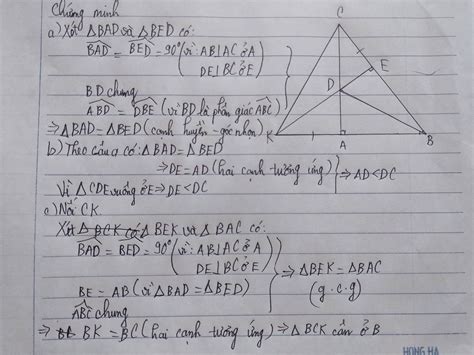 Chứng minh
a) Xét ΔBAD và ΔBED có:
BAD = BED = 90° (vì: AB⊥AC ở A
DE⊥BC ở E)
BD chung
ABD = DBE (vì BD là phân giác ABC)
⇒ ΔBAD = ΔBED (cạnh huyền - góc nhọn)
b) Theo câu a có: ΔBAD = ΔBED
⇒ DE = AD (hai cạnh tương ứng)
Vì ΔCDE vuông ở E ⇒ DE < DC
⇒ AD < DC
c) Nối CK.
Xét ΔBCK có ΔBEK và ΔBAC có:
BAD = BED = 90° (vì: AB⊥AC ở A
DE⊥BC ở E)
BE = AB (vì ΔBAD = ΔBED)
ABC chung
⇒ ΔBEK = ΔBAC
(g.c.g)
⇒ BK = BC (hai cạnh tương ứng) ⇒ ΔBCK cân ở B
C
E
D
K
A
B
HONG HA